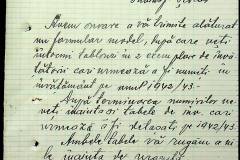 Avem onoare a vă trimite alăturat
un formular model, după care veți
întocmi tabloul în 2 exemplare de învă-
țătorii cari urmează a fi numiți în
învățământ pe anul 1942/43.-
După terminarea numirilor
veți înainta și tabele de înv. cari
urmează a fi detașați pe 1942/43.-
Ambele tabele vă rugăm a ni
le înainta de urgență